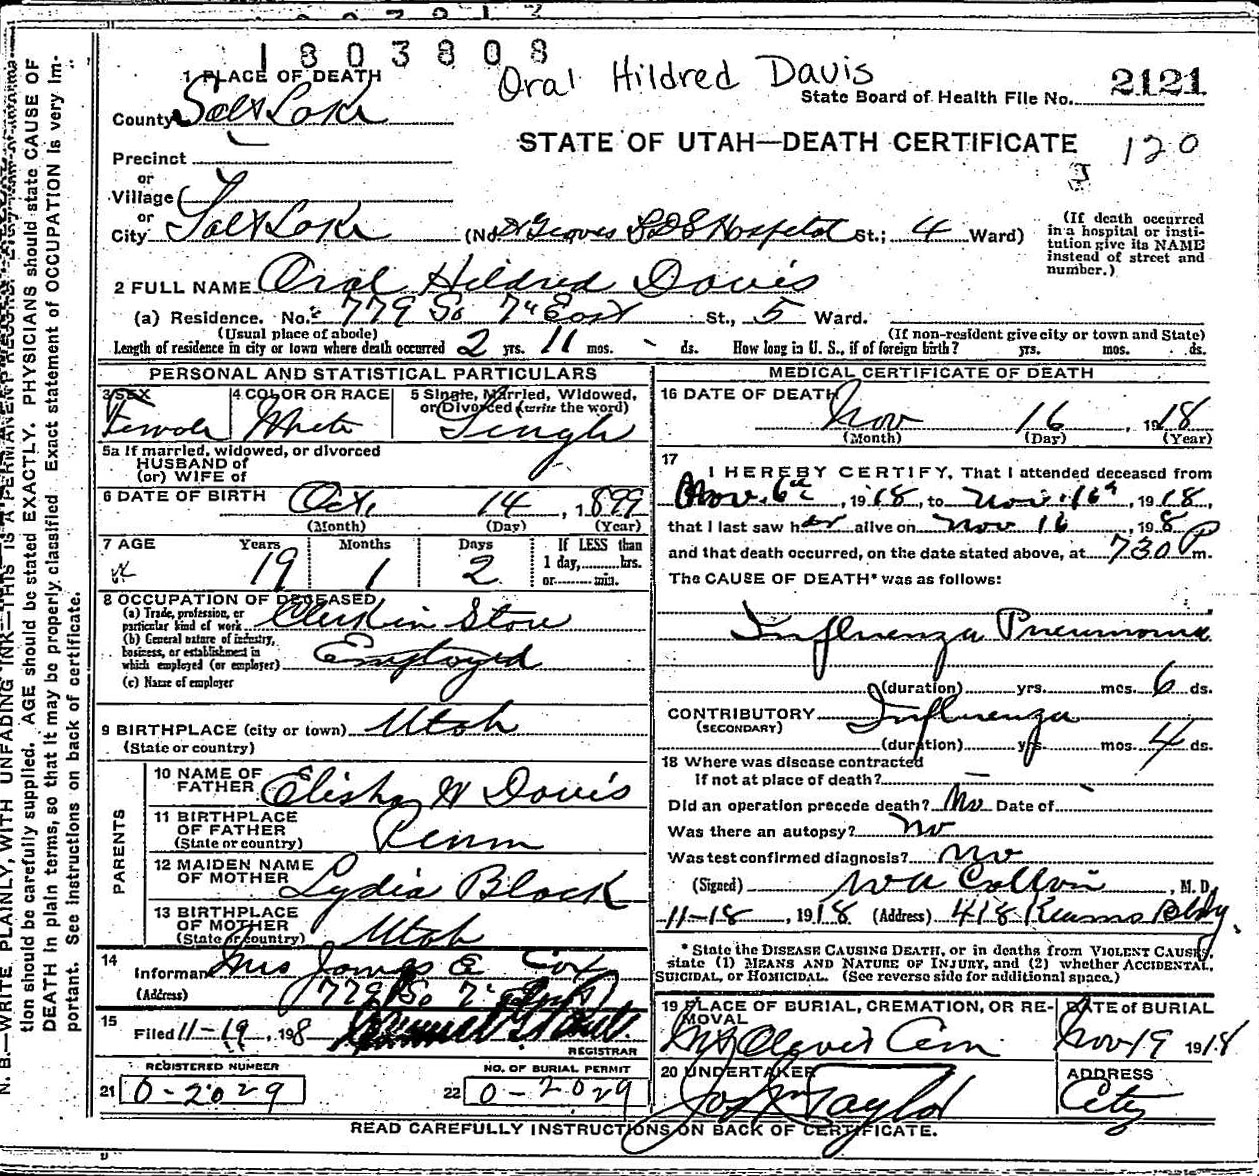 1803808
Oral Hildred Davis
2121
State Board of Health File No.
STATE OF UTAH—DEATH CERTIFICATE
120
1 PLACE OF DEATH
County Salt Lake
Precinct
or
Village
or
City Salt Lake (No. Dr Groves L D S Hospital St.; 4 Ward)
(If death occurred in a hospital or insti-
tution give its NAME
instead of street and
number.)
2 FULL NAME Oral Hildred Davis
(a) Residence. No. 779 So 7th East St., 5 Ward.
(Usual place of abode) (If non-resident give city or town and State)
Length of residence in city or town where death occurred 2 yrs. 11 mos. - ds. How long in U. S., if of foreign birth? yrs. mos. ds.
PERSONAL AND STATISTICAL PARTICULARS
3 SEX Female
4 COLOR OR RACE White
5 Single, Married, Widowed,
or Divorced (write the word)
Single
5a If married, widowed, or divorced
HUSBAND of
(or) WIFE of
6 DATE OF BIRTH Oct. 14, 1899
(Month) (Day) (Year)
7 AGE Years Months Days If LESS than
19 1 2 1 day, hrs.
or min.
8 OCCUPATION OF DECEASED
(a) Trade, profession, or
particular kind of work Clerk in Store
(b) General nature of industry,
business, or establishment in
which employed (or employer) Employed
(c) Name of employer
9 BIRTHPLACE (city or town) Utah
(State or country)
PARENTS
10 NAME OF
FATHER Elisha W Davis
11 BIRTHPLACE
OF FATHER Penn
(State or country)
12 MAIDEN NAME
OF MOTHER Lydia Block
13 BIRTHPLACE
OF MOTHER Utah
(State or country)
14
Informant Mrs James E Cox
(Address) 779 So 7th East
15
Filed 11-19, 1918
REGISTRAR
REGISTERED NUMBER
21 0-2029
NO. OF BURIAL PERMIT
22 0-2029
MEDICAL CERTIFICATE OF DEATH
16 DATE OF DEATH
Nov 16, 1918
(Month) (Day) (Year)
17
I HEREBY CERTIFY, That I attended deceased from
Nov. 6th, 1918, to Nov. 16th, 1918,
that I last saw her alive on Nov 16, 198
and that death occurred, on the date stated above, at 730 P m.
The CAUSE OF DEATH* was as follows:
Influenza Pneumonia
(duration) yrs. mos. 6 ds.
CONTRIBUTORY Influenza
(SECONDARY)
(duration) yrs mos. 4 ds.
18 Where was disease contracted
if not at place of death? —
Did an operation precede death? No Date of
Was there an autopsy? no
Was test confirmed diagnosis? no
(Signed) , M. D.
11-18, 1918 (Address) 418 Kearns Bldg.
* State the DISEASE CAUSING DEATH, or in deaths from VIOLENT CAUSES,
state (1) MEANS AND NATURE OF INJURY, and (2) whether ACCIDENTAL,
SUICIDAL, or HOMICIDAL. (See reverse side for additional space.)
19 PLACE OF BURIAL, CREMATION, OR RE-
MOVAL
Mt Olivet Cem
DATE of BURIAL
Nov 19 1918
20 UNDERTAKER
Jos Wm Taylor
ADDRESS
City
READ CAREFULLY INSTRUCTIONS ON BACK OF CERTIFICATE.
N. B.—WRITE PLAINLY, WITH UNFADING INK—THIS IS A PERMANENT
tion should be carefully supplied. AGE should be stated EXACTLY. PHYSICIANS should state CAUSE OF
DEATH in plain terms, so that it may be properly classified. Exact statement of OCCUPATION is very im-
portant. See instructions on back of certificate.